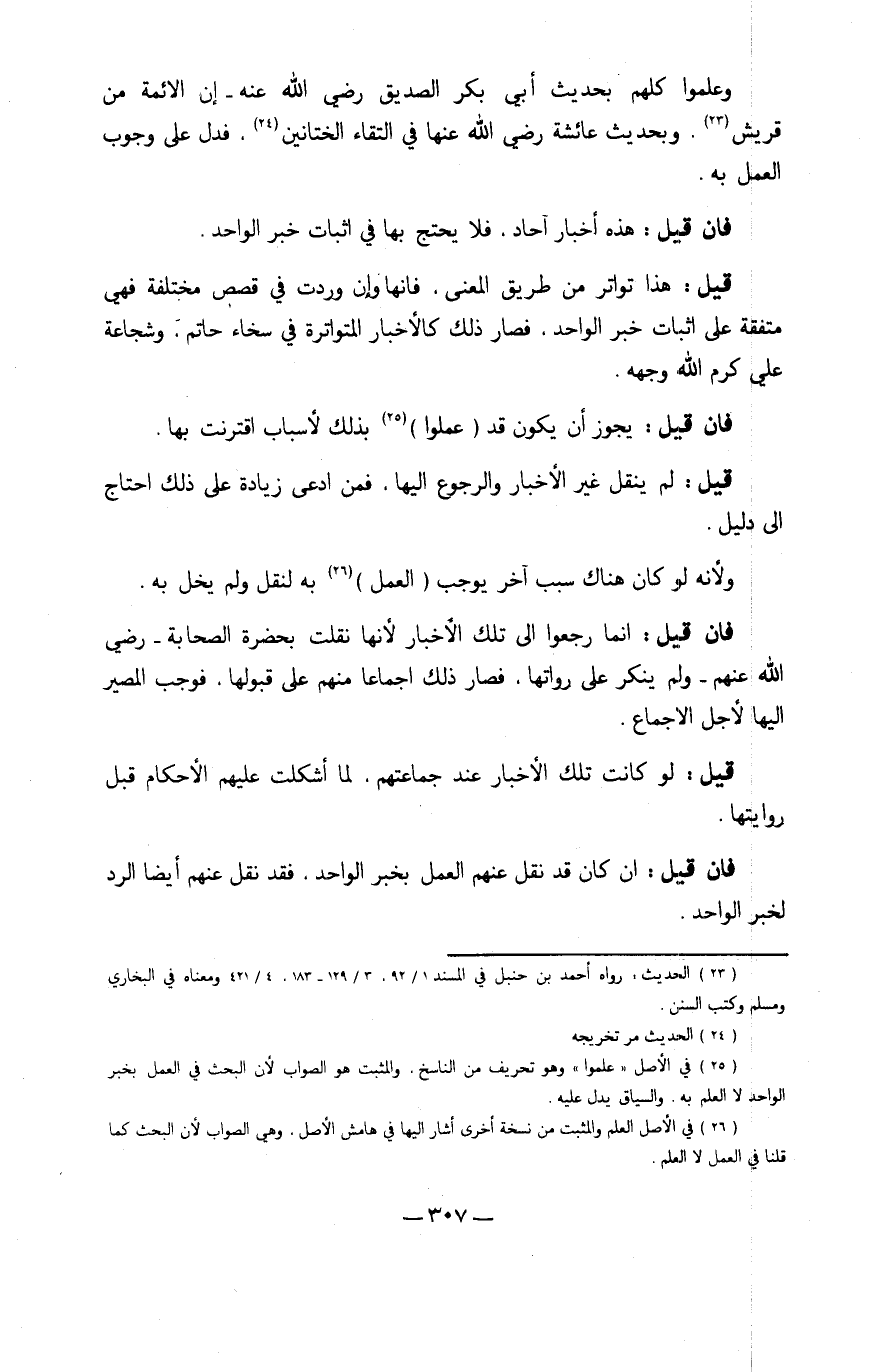 وعلموا كلهم بحديث أبي بكر الصديق رضي الله عنه ـ إن الائمة من
قريش(٢٣) . وبحديث عائشة رضي الله عنها في التقاء الختانين(٢٤) ، فدل على وجوب
العمل به .
فان قيل : هذه أخبار آحاد ، فلا يحتج بها في اثبات خبر الواحد .
قيل : هذا تواتر من طريق المعنى ، فانها وإن وردت في قصص مختلفة فهي
متفقة على اثبات خبر الواحد ، فصار ذلك كالأخبار المتواترة في سخاء حاتم ، وشجاعة
علي كرم الله وجهه .
فان قيل : يجوز أن يكون قد ( عملوا )(٢٥) بذلك لأسباب اقترنت بها .
قيل : لم ينقل غير الأخبار والرجوع اليها ، فمن ادعى زيادة على ذلك احتاج
الى دليل .
ولأنه لو كان هناك سبب آخر يوجب ( العمل )(٢٦) به لنقل ولم يخل به .
فان قيل : انما رجعوا الى تلك الأخبار لأنها نقلت بحضرة الصحابة ـ رضي
الله عنهم ـ ولم ينكر على رواتها ، فصار ذلك اجماعا منهم على قبولها ، فوجب المصير
اليها لأجل الاجماع .
قيل : لو كانت تلك الأخبار عند جماعتهم ، لما أشكلت عليهم الأحكام قبل
روايتها .
فان قيل : ان كان قد نقل عنهم العمل بخبر الواحد ، فقد نقل عنهم أيضا الرد
لخبر الواحد .
( ٢٣ ) الحديث : رواه أحمد بن حنبل في المسند ١ / ٩٢ ، ٣ / ١٢٩ ـ ١٨٣ ، ٤ / ٤٢١ ومعناه في البخاري
ومسلم وكتب السنن .
( ٢٤ ) الحديث مر تخريجه
( ٢٥ ) في الأصل « علموا » وهو تحريف من الناسخ ، والمثبت هو الصواب لأن البحث في العمل بخبر
الواحد لا العلم به . والسياق يدل عليه .
( ٢٦ ) في الأصل العلم والمثبت من نسخة أخرى أشار اليها في هامش الأصل ، وهي الصواب لأن البحث كما
قلنا في العمل لا العلم .
— ٣٠٧ —